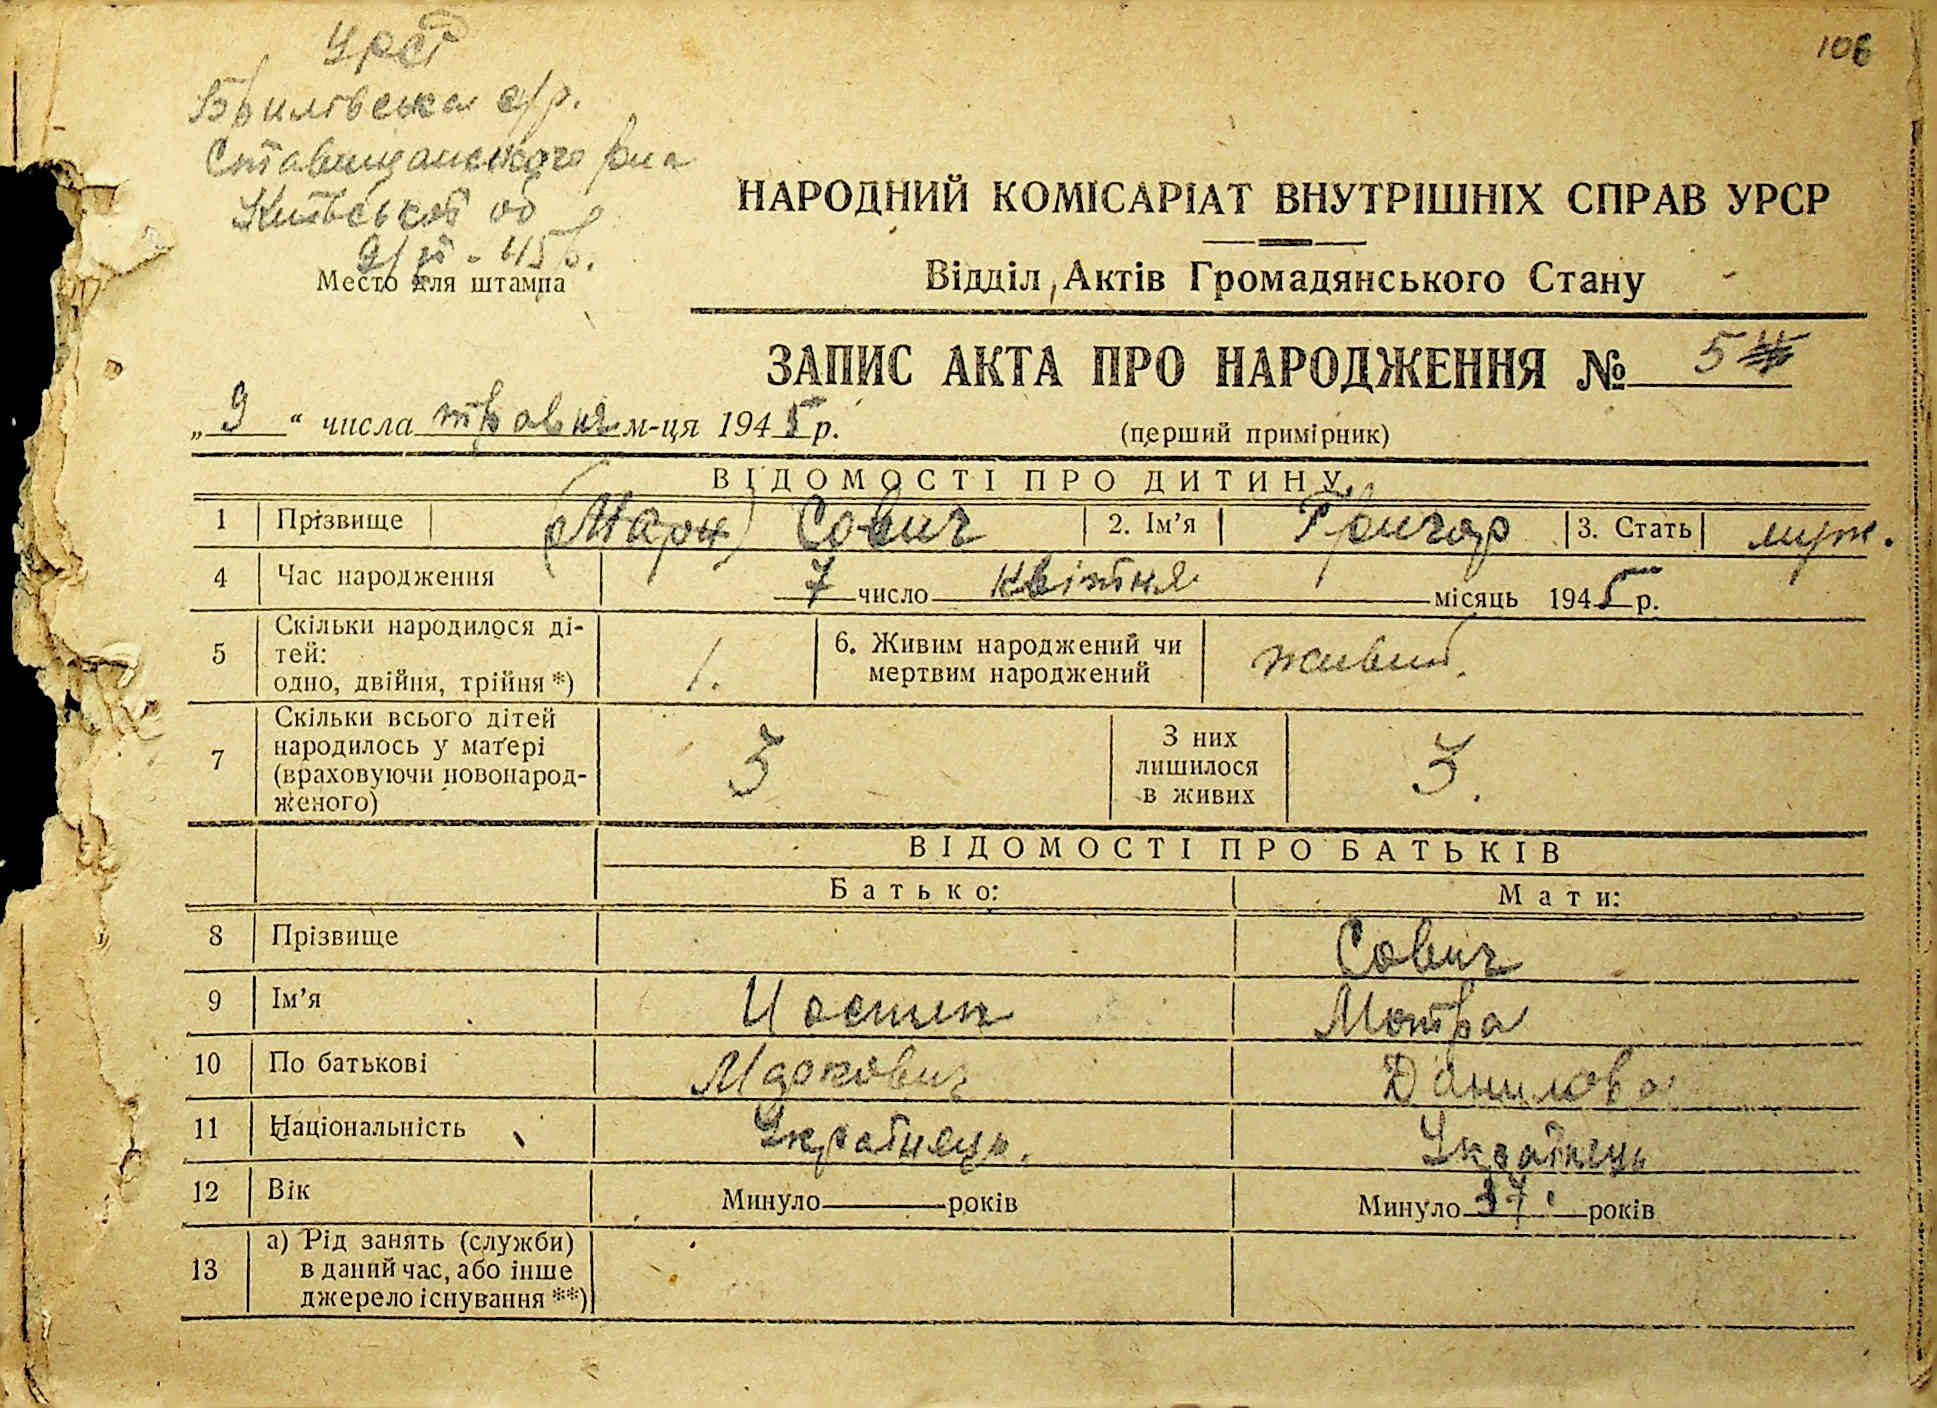 106
УРСР
Брилівська с/р.
Ставищанського р-на
Київської об
9/V - 45 р.
Место для штампа
НАРОДНИЙ КОМІСАРІАТ ВНУТРІШНІХ СПРАВ УРСР
Відділ Актів Громадянського Стану
ЗАПИС АКТА ПРО НАРОДЖЕННЯ № 5
„ 9 “ числа травня м-ця 1945 р.
(перший примірник)
ВІДОМОСТІ ПРО ДИТИНУ
1 Прізвище Сович 2. Ім’я Григор 3. Стать муж.
4 Час народження 7 число квітня місяць 1945 р.
5 Скільки народилося ді-
тей:
одно, двійня, трійня *) 1. 6. Живим народжений чи
мертвим народжений живий.
7 Скільки всього дітей
народилось у матері
(враховуючи новонарод-
женого) 3 З них
лишилося
в живих 3.
ВІДОМОСТІ ПРО БАТЬКІВ
Батько: Мати:
8 Прізвище Сович
9 Ім’я Мотра
10 По батькові Маркович Данилова
11 Національність Українець. Українець
12 Вік Минуло років Минуло 37 років
13 а) Рід занять (служби)
в даний час, або інше
джерело існування **)